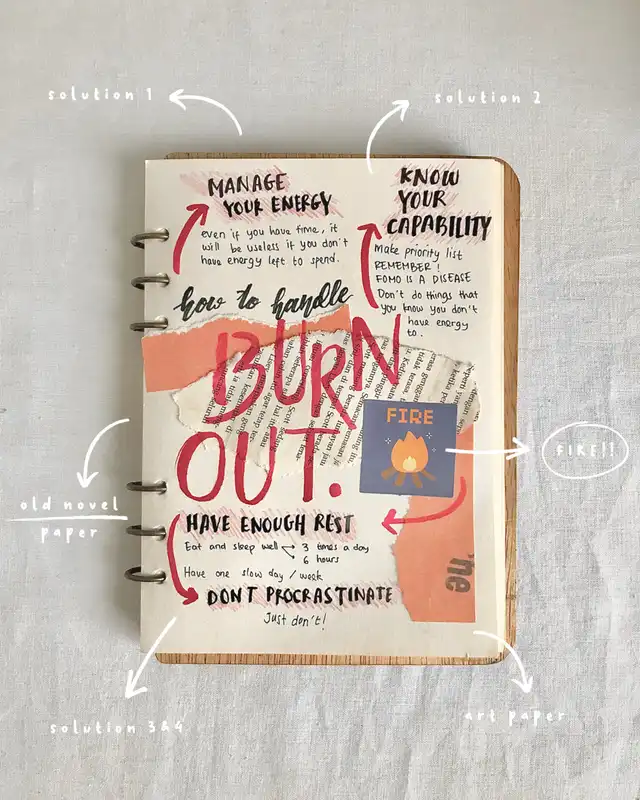 solution 1
solution 2
MANAGE
YOUR ENERGY
even if you have time, it
will be useless if you don't
have energy left to spend.
KNOW
YOUR
CAPABILITY
Make priority list
REMEMBER!
FOMO IS A DISEASE
Don't do things that
you know you don't
have energy
to.
how to handle
BURN
OUT.
FIRE
FIRE!!
old novel
paper
HAVE ENOUGH REST
Eat and sleep well
3 times a day
6 hours
Have one slow day / week
DON'T PROCRASTINATE
Just don't!
'ne
solution 3&4
art paper